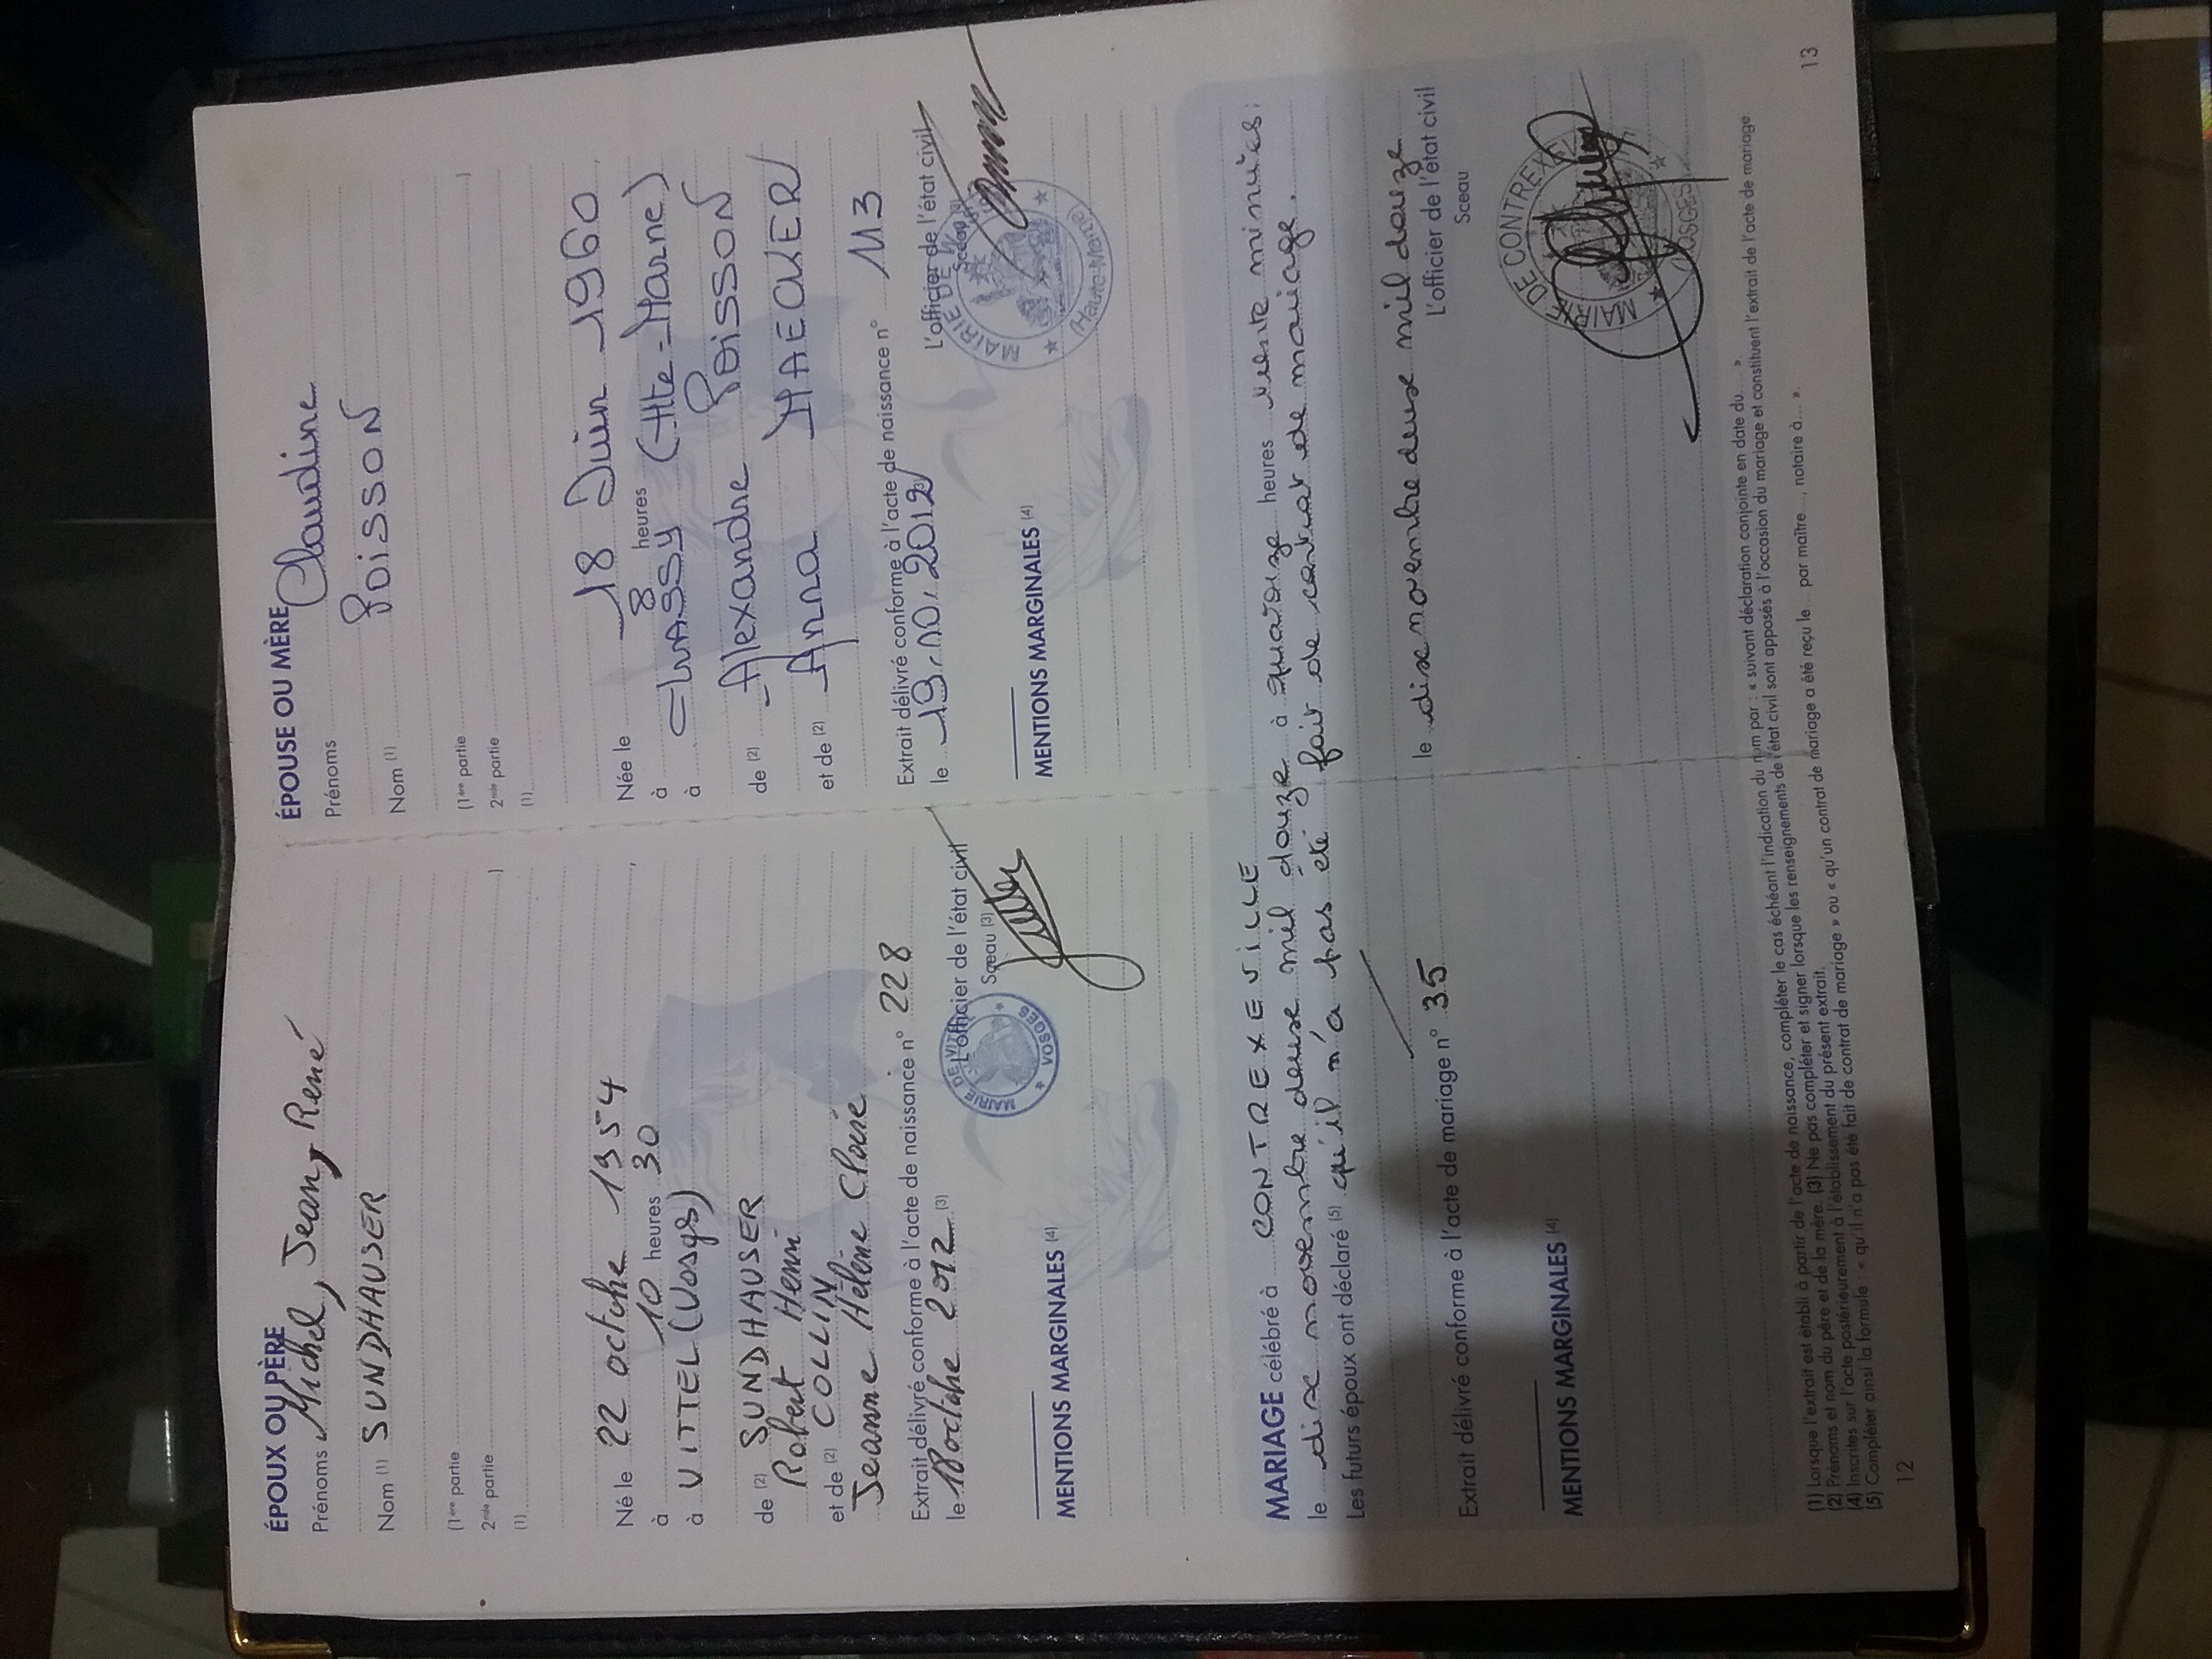 ÉPOUX OU PÈRE
Prénoms Michel, Jean, René
Nom (1) SUNDHAUSER
(1ère partie
2nde partie )
(1)
Né le 22 octobre 1954,
à 10 heures 30
à VITTEL (Vosges)
de (2) SUNDHAUSER
Robert Henri
et de (2) COLLIN
Jeanne Hélène Claire
Extrait délivré conforme à l'acte de naissance n° 228
le 18 octobre 2012 (3)
L'officier de l'état civil
Sceau (3)
MAIRIE DE VITTEL
VOSGES
MENTIONS MARGINALES (4)
ÉPOUSE OU MÈRE
Prénoms Claudine
Nom (1) POISSON
(1ère partie )
2nde partie
(1)
Née le 18 Juin 1960,
à 8 heures
à WASSY (Hte-Marne)
de (2) Alexandre POISSON
et de (2) Anna MAECKER
Extrait délivré conforme à l'acte de naissance n° 113
le 19.10.2012 (3)
L'officier de l'état civil
Sceau (3)
MAIRIE DE
(Haute-Marne)
MENTIONS MARGINALES (4)
MARIAGE célébré à CONTREXEVILLE
le dix novembre deux mil douze à quatorze heures trente minutes;
Les futurs époux ont déclaré (5) qu'il n'a pas été fait de contrat de mariage.
Extrait délivré conforme à l'acte de mariage n° 35 le dix novembre deux mil douze
L'officier de l'état civil
Sceau
MAIRIE DE CONTREXEVILLE
(VOSGES)
MENTIONS MARGINALES (4)
(1) Lorsque l'extrait est établi à partir de l'acte de naissance, compléter le cas échéant l'indication du nom par : « suivant déclaration conjointe en date du... »
(2) Prénoms et nom du père et de la mère. (3) Ne pas compléter et signer lorsque les renseignements de l'état civil sont apposés à l'occasion du mariage et constituent l'extrait de l'acte de mariage.
(4) Inscrites sur l'acte postérieurement à l'établissement du présent extrait.
(5) Compléter ainsi la formule : « qu'il n'a pas été fait de contrat de mariage » ou « qu'un contrat de mariage a été reçu le... par maître..., notaire à... ».
12
13